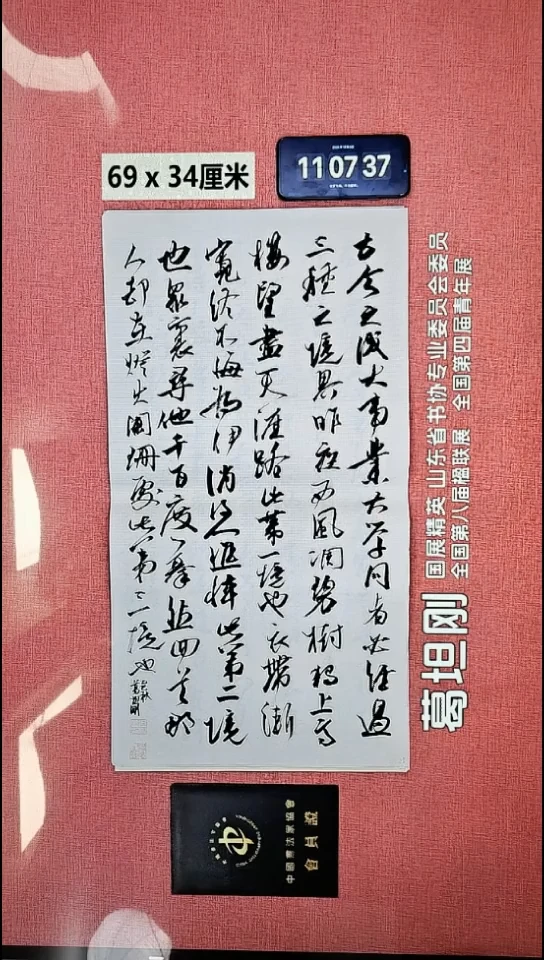 69 x 34厘米
11 07 37
古今之成大事業大学问者必经過
三種之境界昨夜西風凋碧樹獨上高
楼望盡天涯路此第一境也衣带渐
寬终不悔为伊消得人憔悴此第二境
也眾裏尋他千百度驀然回首那
人却在燈火阑珊處此第三境也
国展精英 山东省书协专业委员会委员
全国第八届楹联展 全国第四届青年展
葛坦刚
中國書法家協會
會員證